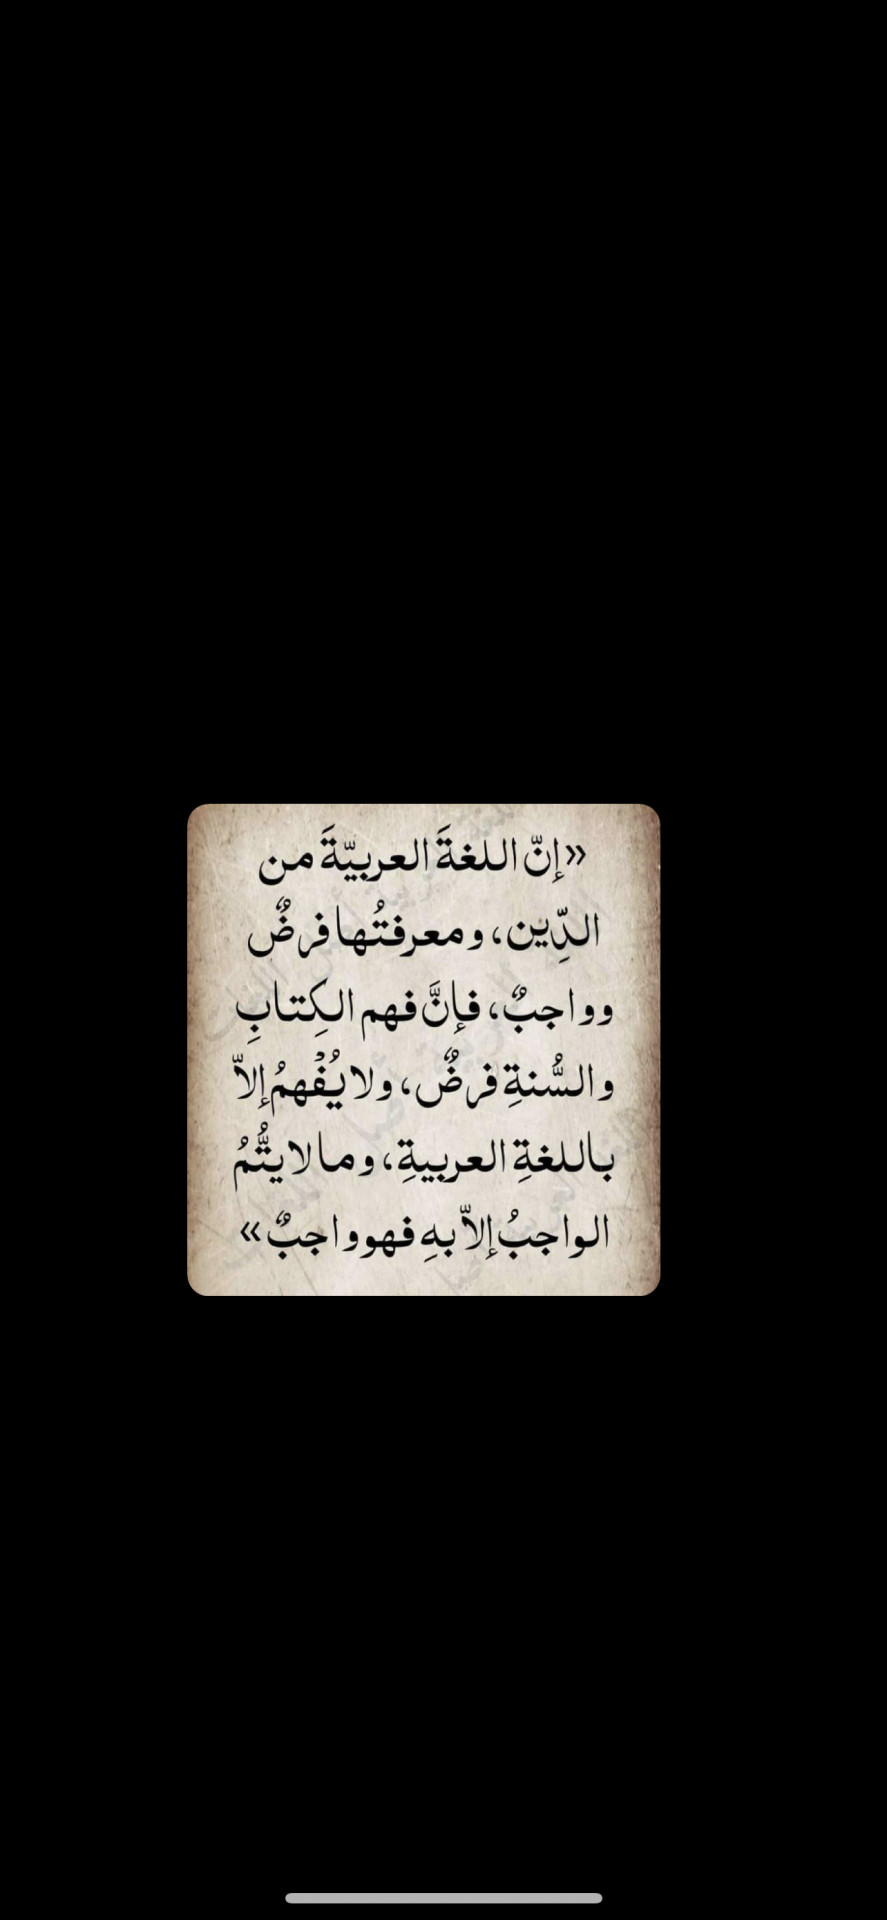 «إنّ اللغةَ العربيّةَ من
الدِّين، ومعرفتُها فرضٌ
وواجبٌ، فإنَّ فهم الكِتابِ
والسُّنةِ فرضٌ، ولا يُفْهمُ إلاّ
باللغةِ العربيةِ، وما لا يتُّمُ
الواجبُ إلاّ بهِ فهو واجبٌ»